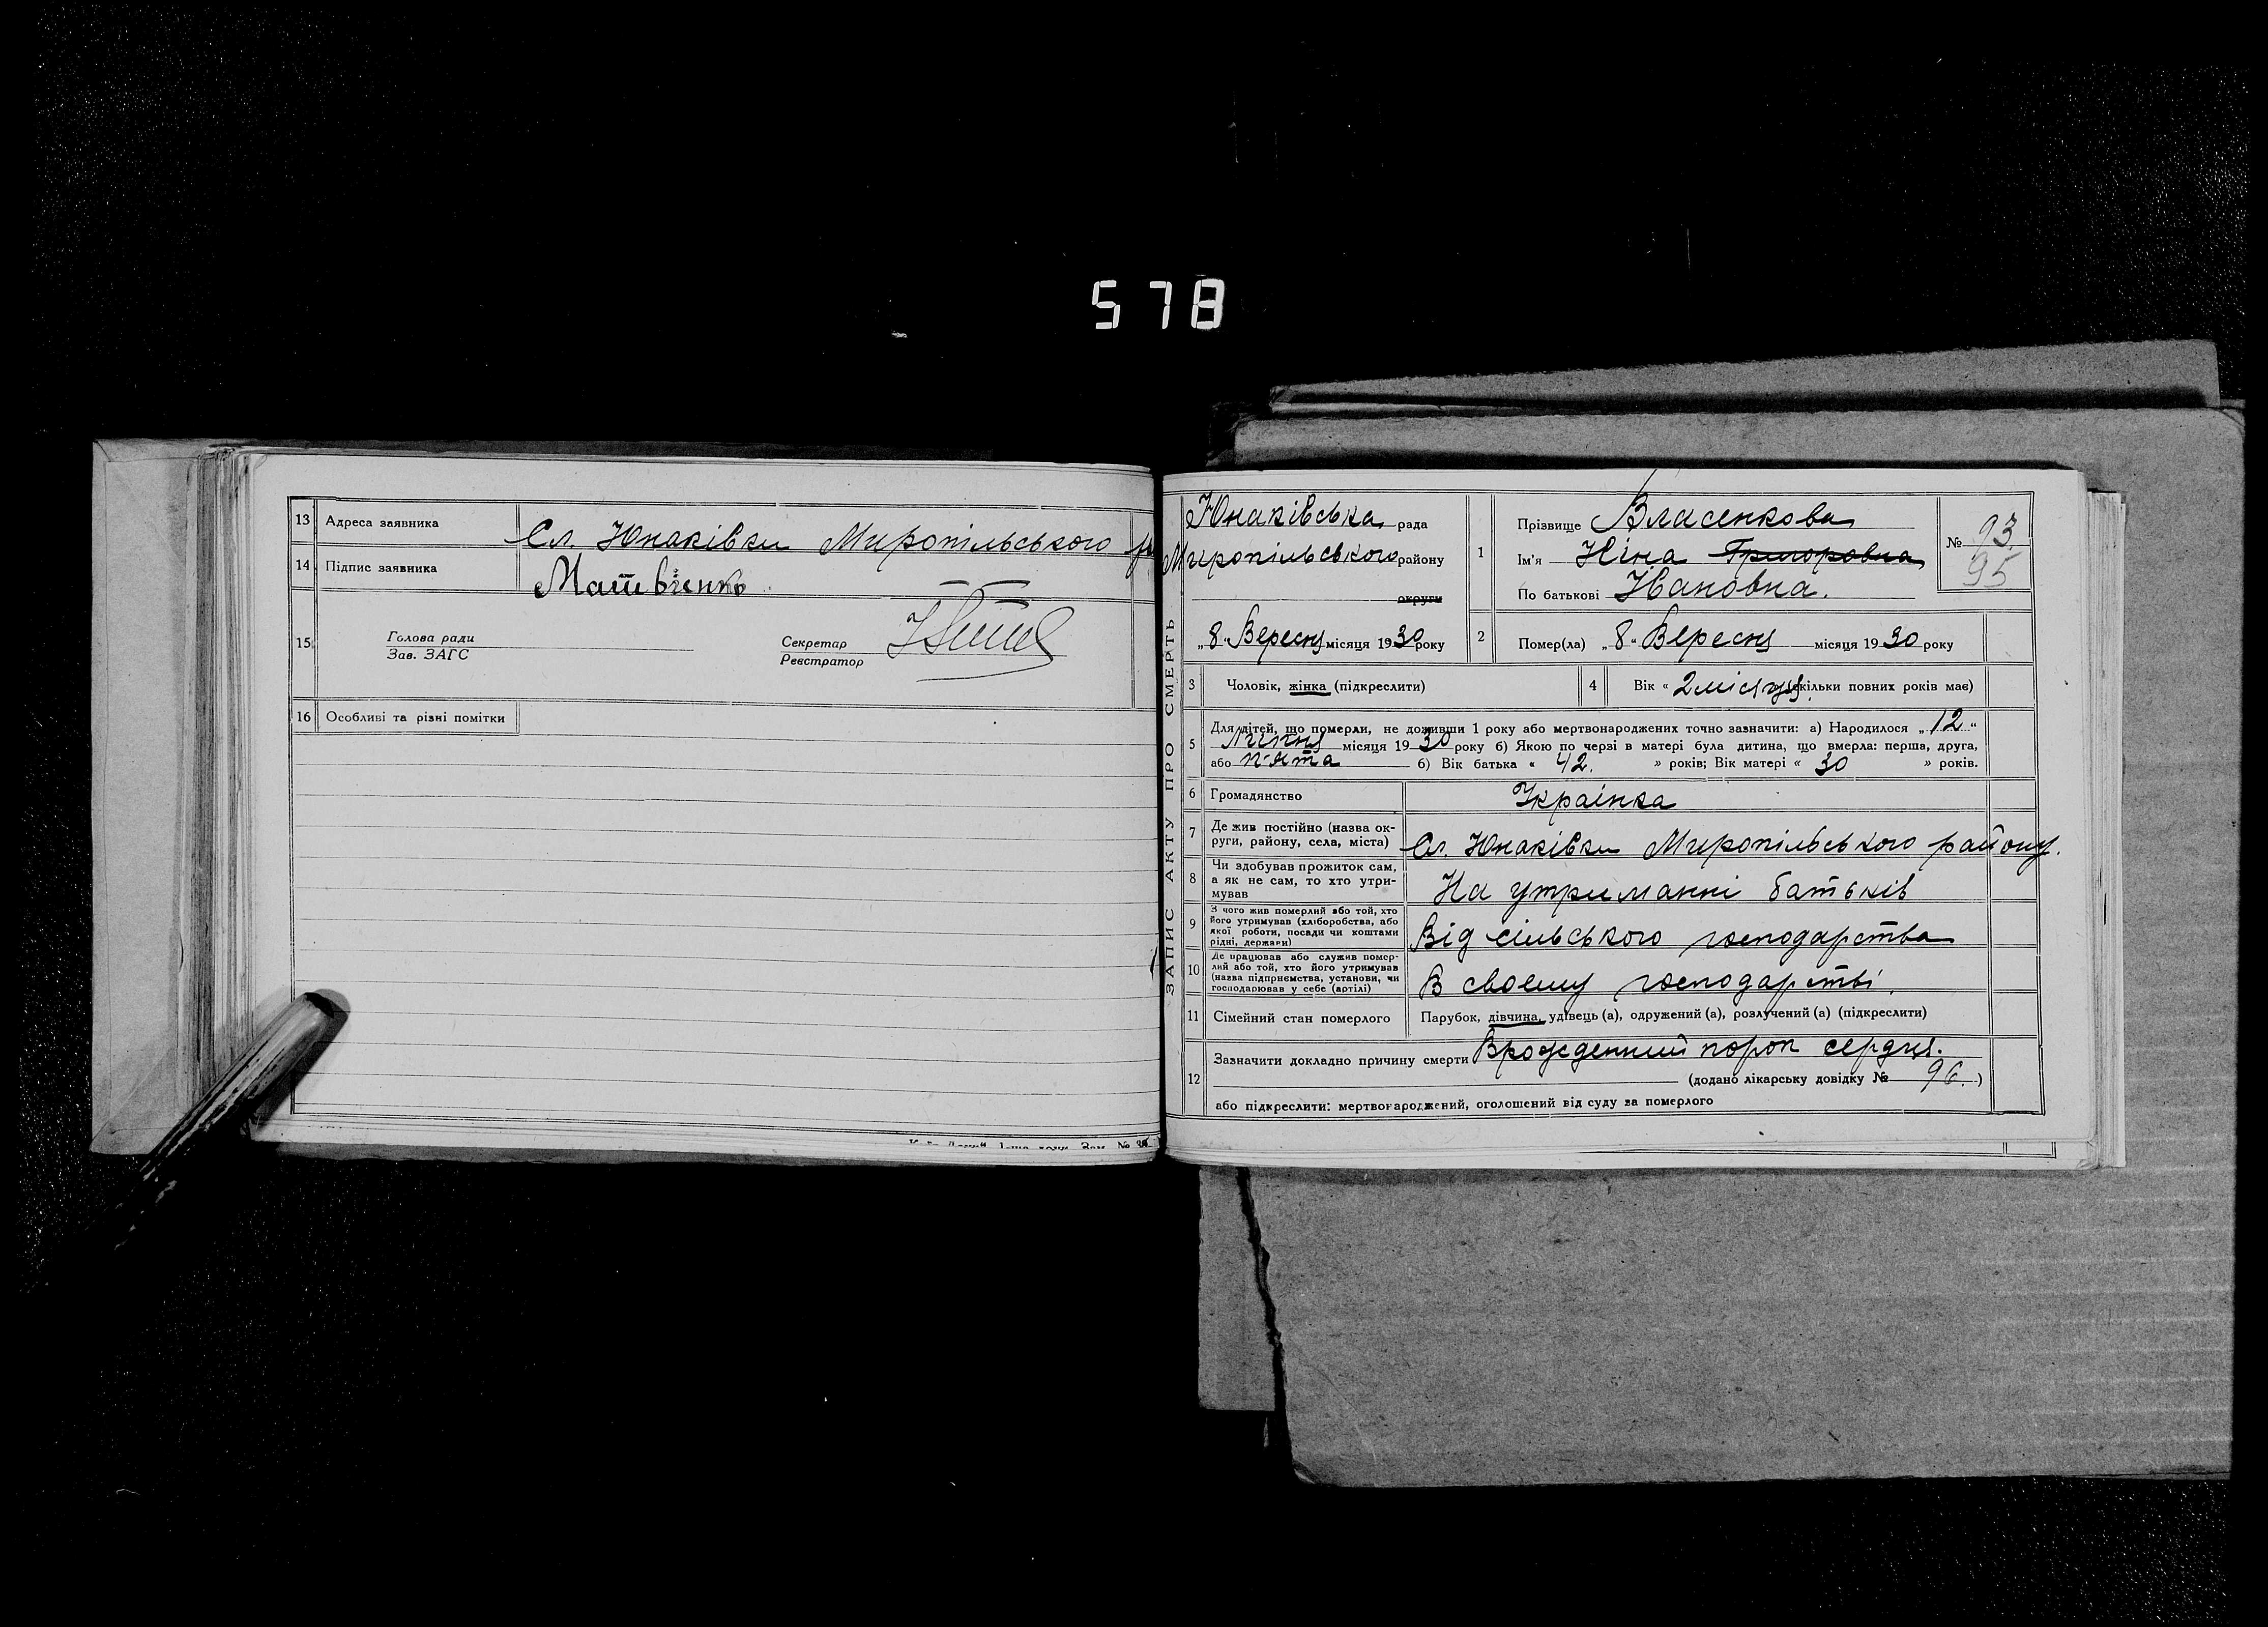 578
13 Адреса заявника Сл. Юнаківки Миропільського
14 Підпис заявника Матвієнко
15 Голова ради
Зав. ЗАГС
Секретар
Реєстратор
16 Особливі та різні помітки
ЗАПИС АКТУ ПРО СМЕРТЬ
Юнаківська рада
Миропільського району
округи
„8" Вересня місяця 1930 року
1 Прізвище Власенкова
Ім'я Ніна Григоровна
По батькові Івановна.
№ 93.
95
2 Помер(ла) „8" Вересня місяця 1930 року
3 Чоловік, жінка (підкреслити)
4 Вік « 2 місяця. скільки повних років має)
5 Для дітей, що померли, не доживши 1 року або мертвонароджених точно зазначити: а) Народилося „12"
Липня місяця 1930 року б) Якою по черзі в матері була дитина, що вмерла: перша, друга,
або п'ята б) Вік батька « 42. » років; Вік матері « 30 » років.
6 Громадянство Українка
7 Де жив постійно (назва ок-
руги, району, села, міста) Сл. Юнаківки Миропільського району.
8 Чи здобував прожиток сам,
а як не сам, то хто утри-
мував На утриманні батьків
9 З чого жив померлий або той, хто
його утримував (хліборобства, або
якої роботи, посади чи коштами
рідні, держави) Від сільського господарства
10 Де працював або служив помер-
лий або той, хто його утримував
(назва підприємства, установи, чи
господарював у себе (артілі) В своему господарстві.
11 Сімейний стан померлого Парубок, дівчина, удівець (а), одружений (а), розлучений (а) (підкреслити)
12 Зазначити докладно причину смерти Врожденний порок сердця.
(додано лікарську довідку № 96.)
або підкреслити: мертвонароджений, оголошений від суду за померлого